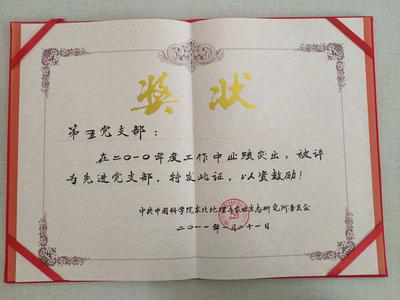 奖状
第五党支部：
在二〇一〇年度工作中业绩突出，被评
为先进党支部，特发此证，以资鼓励！
中共中国科学院东北地理与农业生态研究所委员会
二〇一一年一月二十一日